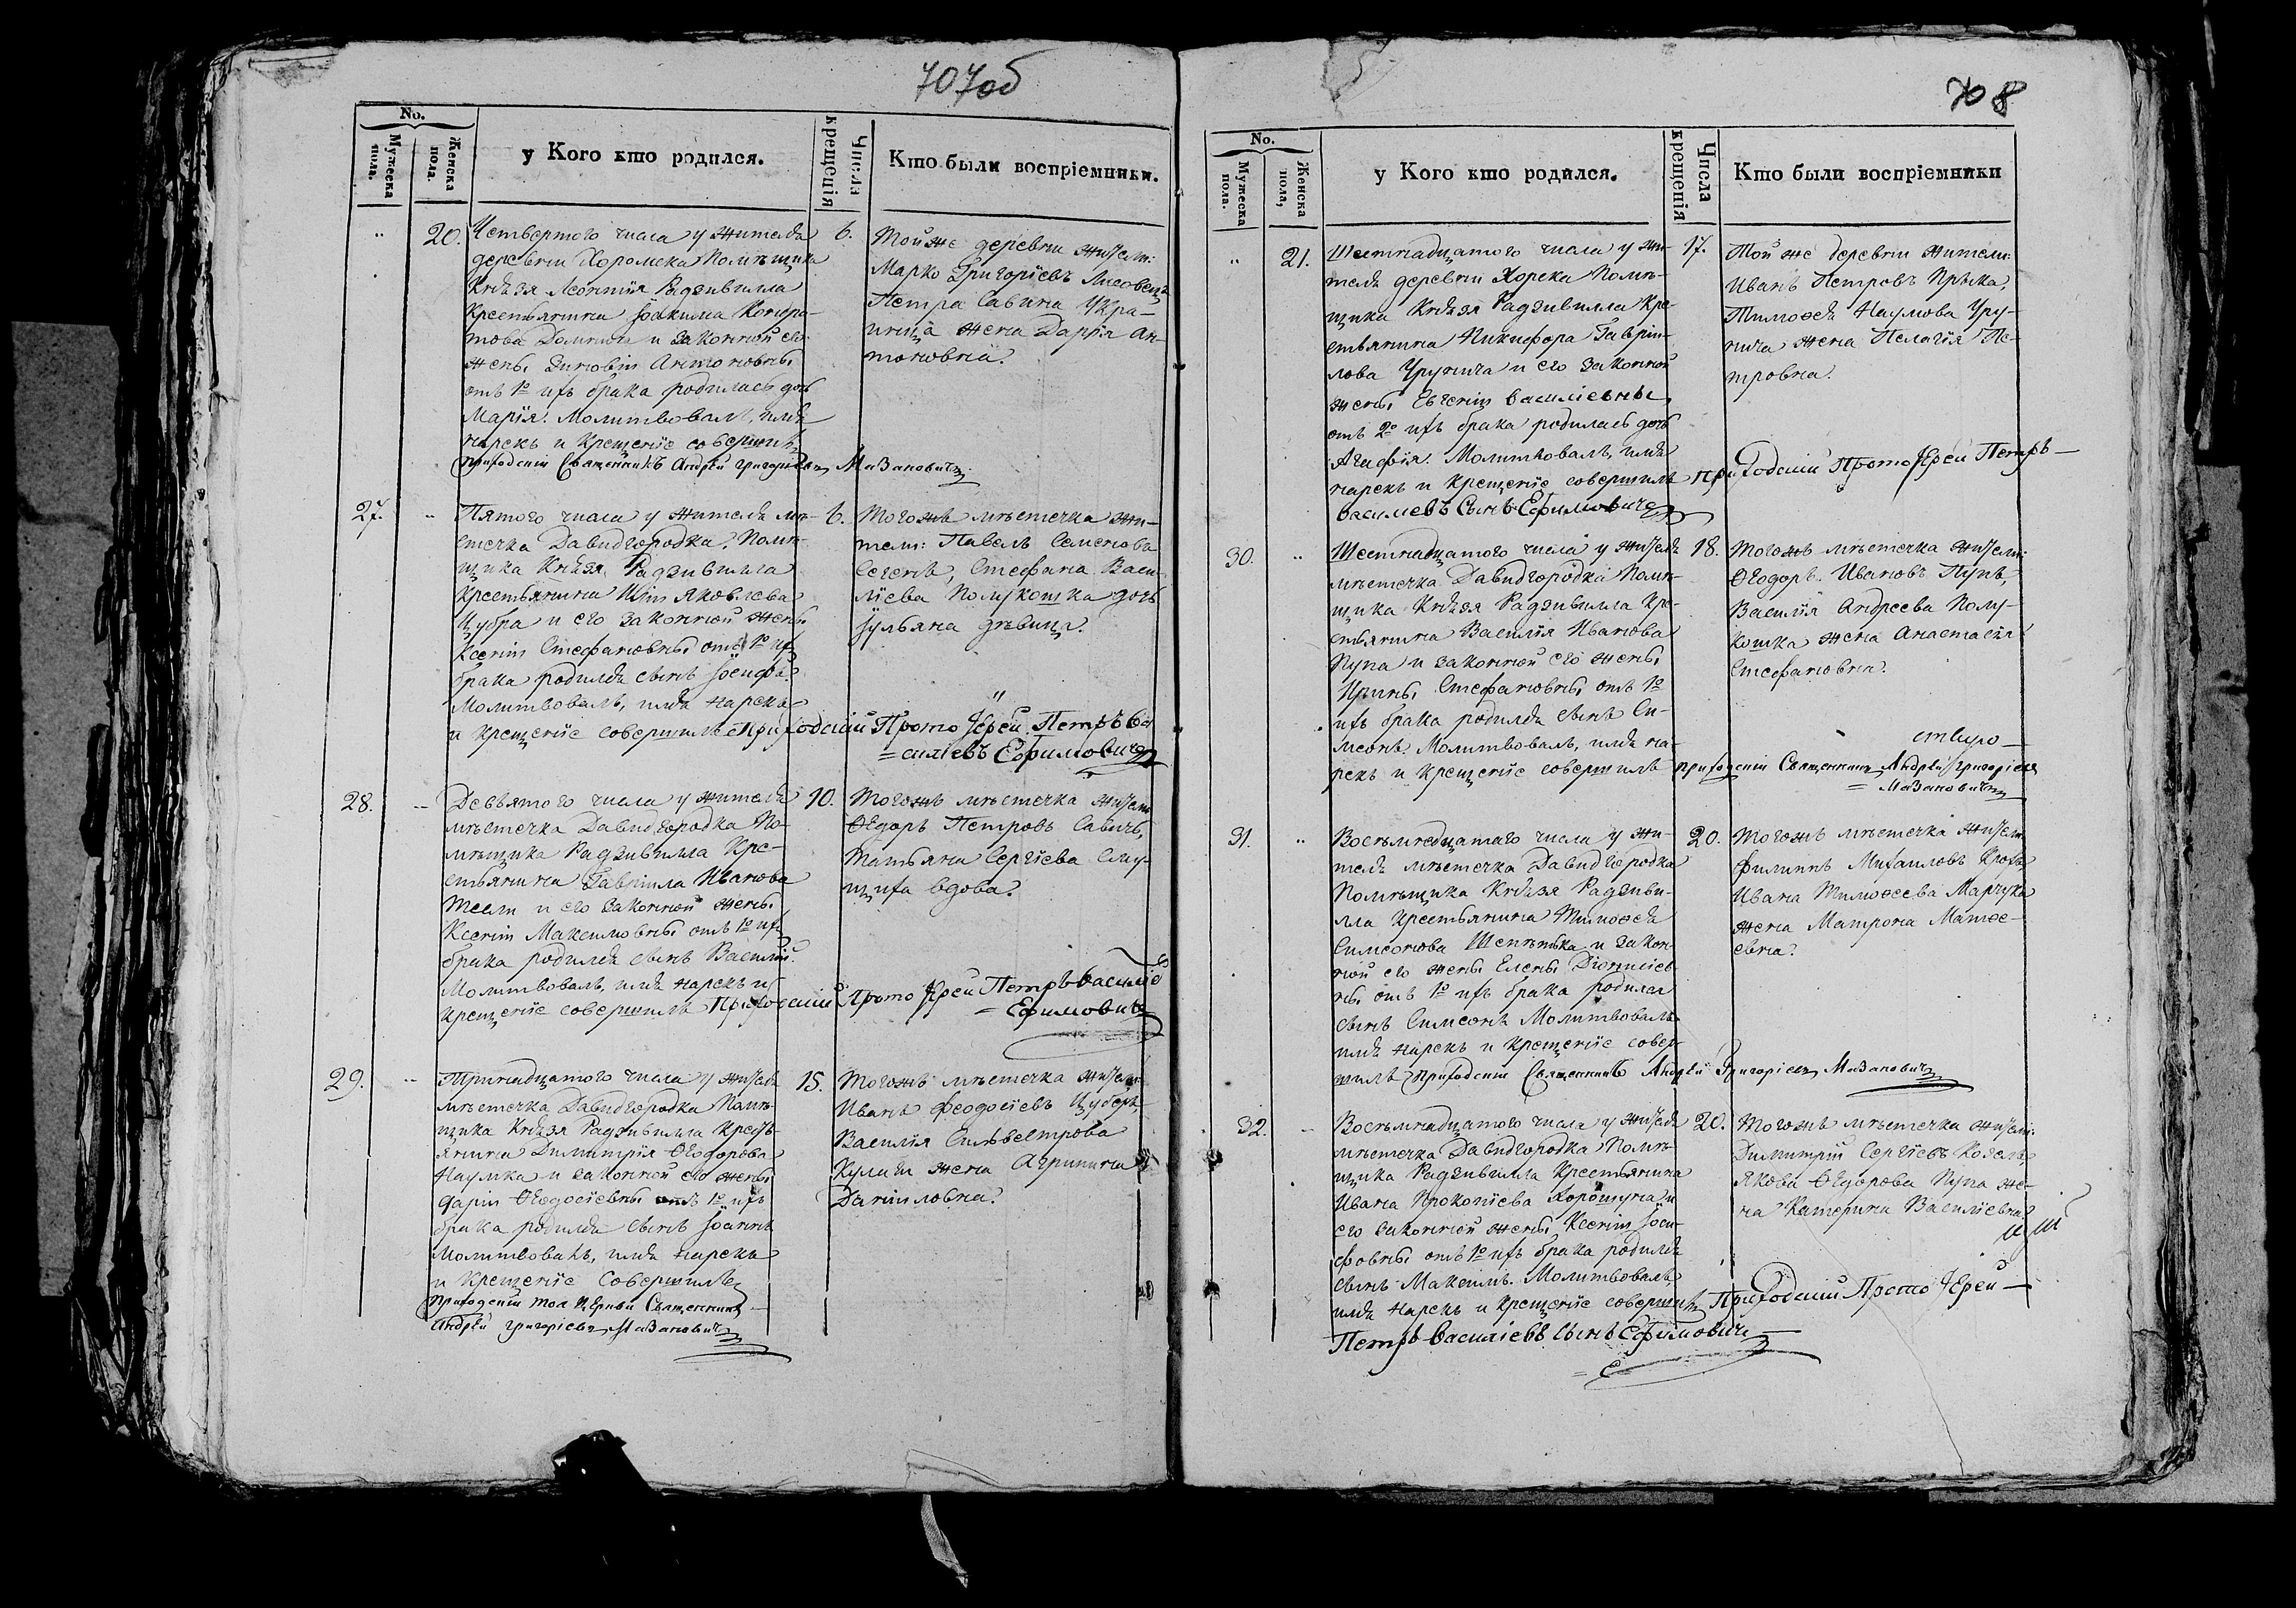 707об
No.
Мужеска пола.
Женска пола.
у Кого кто родился.
Числа крещенія
Кто были воспріемники.
20.
Четвертого числа у жителя
деревни Хоромска Помѣщика
Князя Леонтія Радзивилла
Крестьянина Іоакима Кондра-
това Доминича и законной его
жены Зиновіи Антоновны
отъ 1º ихъ брака родилась дочь
Марія. Молитвовалъ, имя
нарекъ и Крещеніе совершилъ
Приходскій Священникъ Андрей Григоріевъ Мазановичъ
6.
Той же деревни жители:
Марко Григоріевъ Лисовецъ,
Петра Савина Укра-
инца жена Дарія Ан-
тоновна.
27.
Пятого числа у жителя мѣ-
стечка Давидгородка, Помѣ-
щика Князя Радзивилла
Крестьянина Иліи Яковлева
Цубра и его законной жены
Ксеніи Стефановны отъ 1º ихъ
брака родился сынъ Іосифъ.
Молитвовалъ, имя нарекъ
и Крещеніе совершилъ Приходскій ПротоІерей Петръ Ва
=силіевъ Ефимовичъ
6.
Тогожъ мѣстечка жи-
тели: Павелъ Семеновъ
Сегенъ, Стефана Васи-
ліева Полукошка дочь
Іульяна дѣвица.
28.
Девятого числа у жителя
мѣстечка Давидгородка По-
мѣщика Радзивилла Кре-
стьянина Гавріила Иванова
Тесли и его законной жены
Ксеніи Максимовны отъ 1º ихъ
брака родился сынъ Василій.
Молитвовалъ, имя нарекъ и
крещеніе совершилъ Приходскій ПротоІерей Петръ Василіевъ
=Ефимовичъ
10.
Тогожъ мѣстечка жители
Ѳедоръ Петровъ Савичъ,
Татьяна Сергіева Слу-
циха вдова.
29.
Тринадцатого числа у жителя
мѣстечка Давидгородка Помѣ-
щика Князя Радзивилла Кресть-
янина Димитрія Ѳеодорова
Наумка и законной его жены
Даріи Ѳеодосіевны отъ 1º ихъ
брака родился сынъ Іоаннъ
Молитвовалъ, имя нарекъ
и Крещеніе Совершилъ
Приходскій тоя Церкви Священникъ
Андрей Григоріевъ Мазановичъ
15.
Тогожъ мѣстечка жители
Иванъ Феодосіевъ Цуберъ,
Василія Сильвестрова
Кулаги жена Агрипина
Даниловна.
708
No.
Мужеска пола.
Женска пола,
у Кого кто родился.
Числа крещенія
Кто были воспріемники
21.
Шестнадцатого числа у жи-
теля деревни Хорска Помѣ-
щика Князя Радзивилла Кре-
стьянина Никифора Гаврiи-
лова Урунича и его законной
жены Евгеніи Василіевны
отъ 2º ихъ брака родилась дочь
Агафія. Молитвовалъ, имя
нарекъ и Крещеніе совершилъ Приходскій ПротоІерей Петръ
Василіевъ Сынъ Ефимовичъ
17.
Той же деревни жители:
Иванъ Петровъ Прыка,
Тимоѳея Наумова Уру-
нича жена Пелагія Пе-
тровна.
30.
Шестнадцатого числа у жителя
мѣстечка Давидгородка Помѣ-
щика Князя Радзивилла Кре-
стьянина Василія Иванова
Пупа и законной его жены
Ирины Стефановны отъ 1º
ихъ брака родился сынъ Си-
меонъ. Молитвовалъ, имя на-
рекъ и Крещеніе совершилъ Приходскій Священникъ Андрей Григоріевъ
=Мазановичъ
18.
Тогожъ мѣстечка жители:
Ѳеодоръ Ивановъ Пупъ,
Василія Андреева Полу-
кошка жена Анастасія
Стефановна.
31.
Восемнадцатаго числа у жи-
теля мѣстечка Давидгородка
Помѣщика Князя Радзиви-
лла Крестьянина Тимоѳея
Симеонова Шепетька и закон-
ной его жены Елены Діонисіев-
ны отъ 1º ихъ брака родился
сынъ Симеонъ Молитвовалъ
имя нарекъ и Крещеніе совер-
шилъ Приходскій Священникъ Андрей Григоріевъ Мазановичъ
20.
Тогожъ мѣстечка жители
Филиппъ Михаиловъ Крохъ,
Ивана Тимоѳеева Марчука
жена Матрона Матѳе-
евна.
32.
Восемнадцатого числа у жителя
мѣстечка Давидгородка Помѣ-
щика Радзивилла Крестьянина
Ивана Прокопіева Хорошуна и
его законной жены Ксеніи Іоси-
фовны отъ 1º ихъ брака родился
сынъ Максимъ. Молитвовалъ,
имя нарекъ и Крещеніе совершилъ Приходскій ПротоІерей
Петръ Василіевъ Сынъ Ефимовичъ
20.
Тогожъ мѣстечка жители:
Димитрій Сергіевъ Козелъ,
Якова Ѳедорова Пупа же-
на Катерина Василіевна